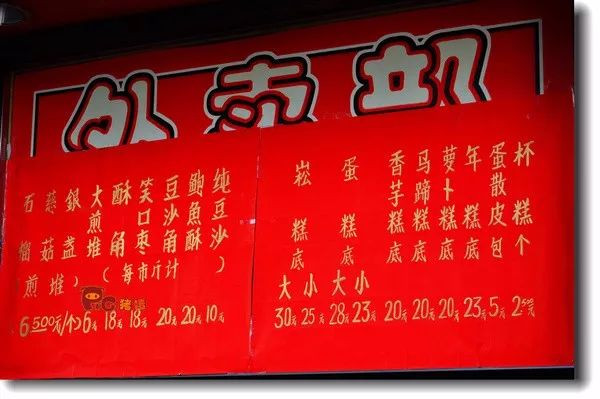 外卖部
石榴煎堆
慈菇
銀盏
大煎堆
酥角
笑口枣
豆沙角
鲍鱼酥
纯豆沙
(每市斤计)
6500元/个 6元 18元 18元 20元 20元 10元
崧糕底
蛋糕底
香芋糕底
马蹄糕底
萝卜糕底
年糕底
蛋散皮包
杯糕个
大 小 大 小
30元 25元 28元 23元 20元 20元 20元 23元 5元 250元